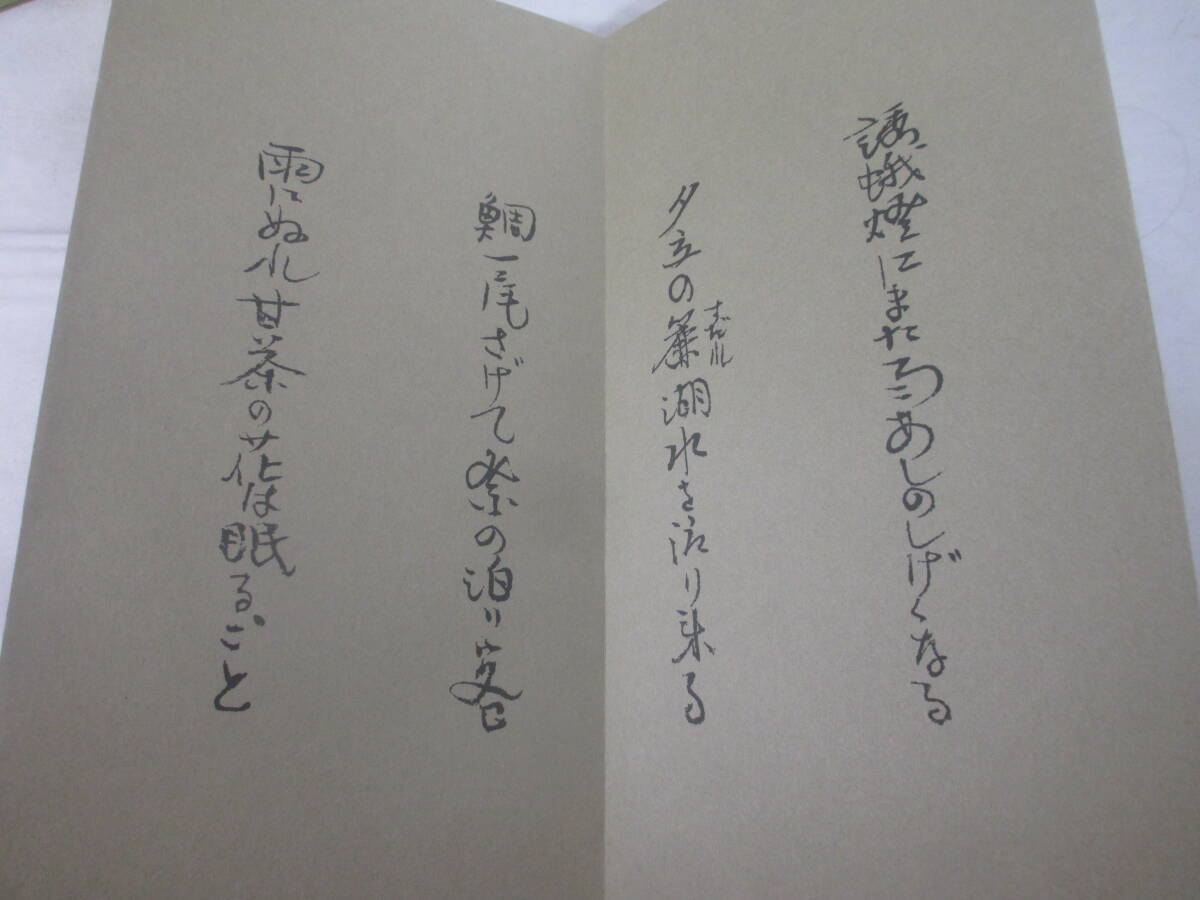 誘蛾燈にまた雨あしのしげくなる
夕立の簾湖水を渡り来る
すだれ
鯛一尾さげて祭の泊り客
雨にぬれ甘茶の花は眠るごと